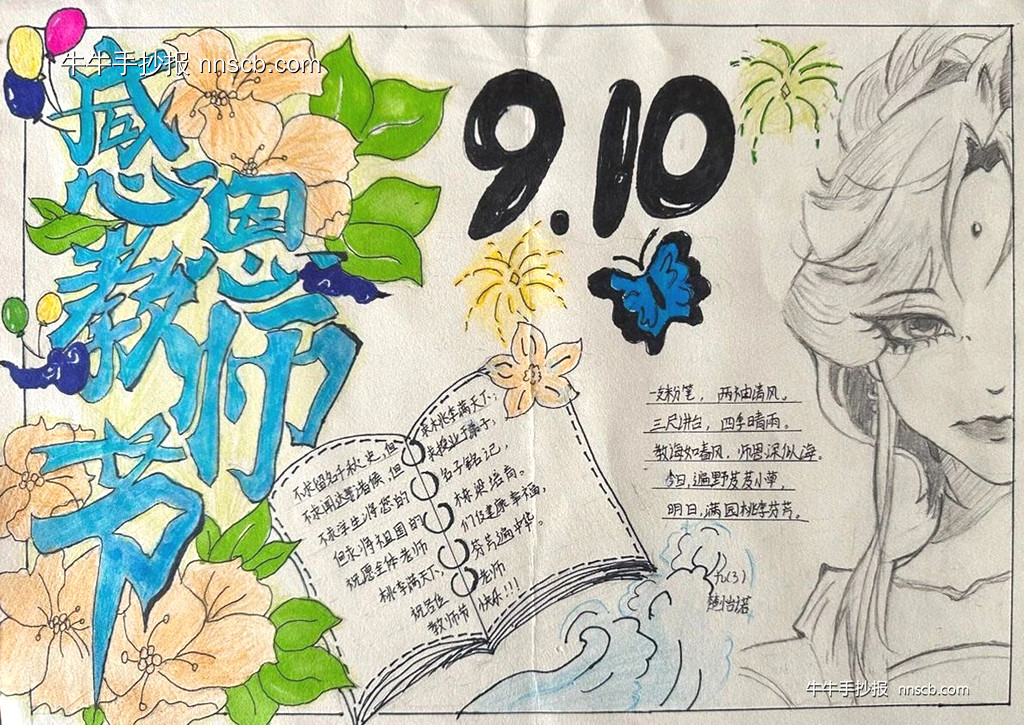 牛牛手抄报 nnscb.com
感恩教师节
9.10
一支粉笔，两袖清风。
三尺讲台，四季晴雨。
教海如春风，师恩深似海。
今日，遍野芨芨小草，
明日，满园桃李芬芳。
不求留名千秋史，但
求桃李满天下；
不求闻达诸侯，但
求授业于弟子；
不求学生将您的
名子铭记，
但求将祖国的
栋梁培育。
祝愿全体老师
们健康幸福，
桃李满天下，
芬芳遍中华。
祝各位
老师
教师节
快乐!!!
九(3)
牛牛手抄报 nnscb.com